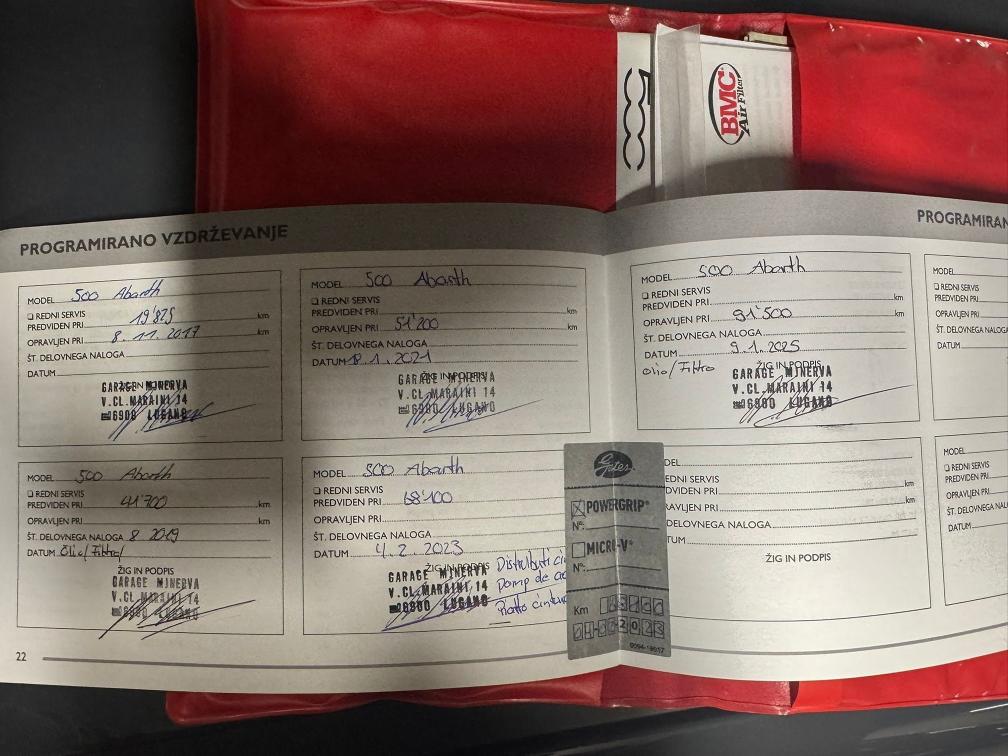 BMC
Air Filter
PROGRAMIRANO VZDRŽEVANJE
MODEL 500 Abarth
❑ REDNI SERVIS
PREDVIDEN PRI 19'875 km
OPRAVLJEN PRI 8.11.2017 km
ŠT. DELOVNEGA NALOGA
DATUM
ŽIG IN PODPIS
GARAGE MINERVA
V.CL.MARAINI 14
6900 LUGANO
MODEL 500 Abarth
❑ REDNI SERVIS
PREDVIDEN PRI 41'700 km
OPRAVLJEN PRI km
ŠT. DELOVNEGA NALOGA 8 2019
DATUM Olio/Filtro/
ŽIG IN PODPIS
GARAGE MINERVA
V.CL.MARAINI 14
6900 LUGANO
22
MODEL 500 Abarth
❑ REDNI SERVIS
PREDVIDEN PRI km
OPRAVLJEN PRI 51'200 km
ŠT. DELOVNEGA NALOGA
DATUM 18.1.2021
ŽIG IN PODPIS
GARAGE MINERVA
V.CL.MARAINI 14
6900 LUGANO
MODEL 500 Abarth
❑ REDNI SERVIS
PREDVIDEN PRI 68'100
OPRAVLJEN PRI
ŠT. DELOVNEGA NALOGA
DATUM 4.2.2023
ŽIG IN PODPIS
GARAGE MINERVA
V.CL.MARAINI 14
6900 LUGANO
Gates
POWERGRIP®
N°:
MICRO-V®
N°:
Km
2023
PROGRAMIRAN
MODEL 500 Abarth
❑ REDNI SERVIS
PREDVIDEN PRI km
OPRAVLJEN PRI 91'500 km
ŠT. DELOVNEGA NALOGA
DATUM 9.1.2025
Olio/Filtro
ŽIG IN PODPIS
GARAGE MINERVA
V.CL.MARAINI 14
6900 LUGANO
DEL
REDNI SERVIS
EDVIDEN PRI km
RAVLJEN PRI km
DELOVNEGA NALOGA
TUM
ŽIG IN PODPIS
MODEL
❑ REDNI SERVIS
PREDVIDEN PRI
OPRAVLJEN PRI
ŠT. DELOVNEGA N
DATUM
MODEL
❑ REDNI SERVIS
PREDVIDEN PRI
OPRAVLJEN PRI
ŠT. DELOVNEGA
DATUM